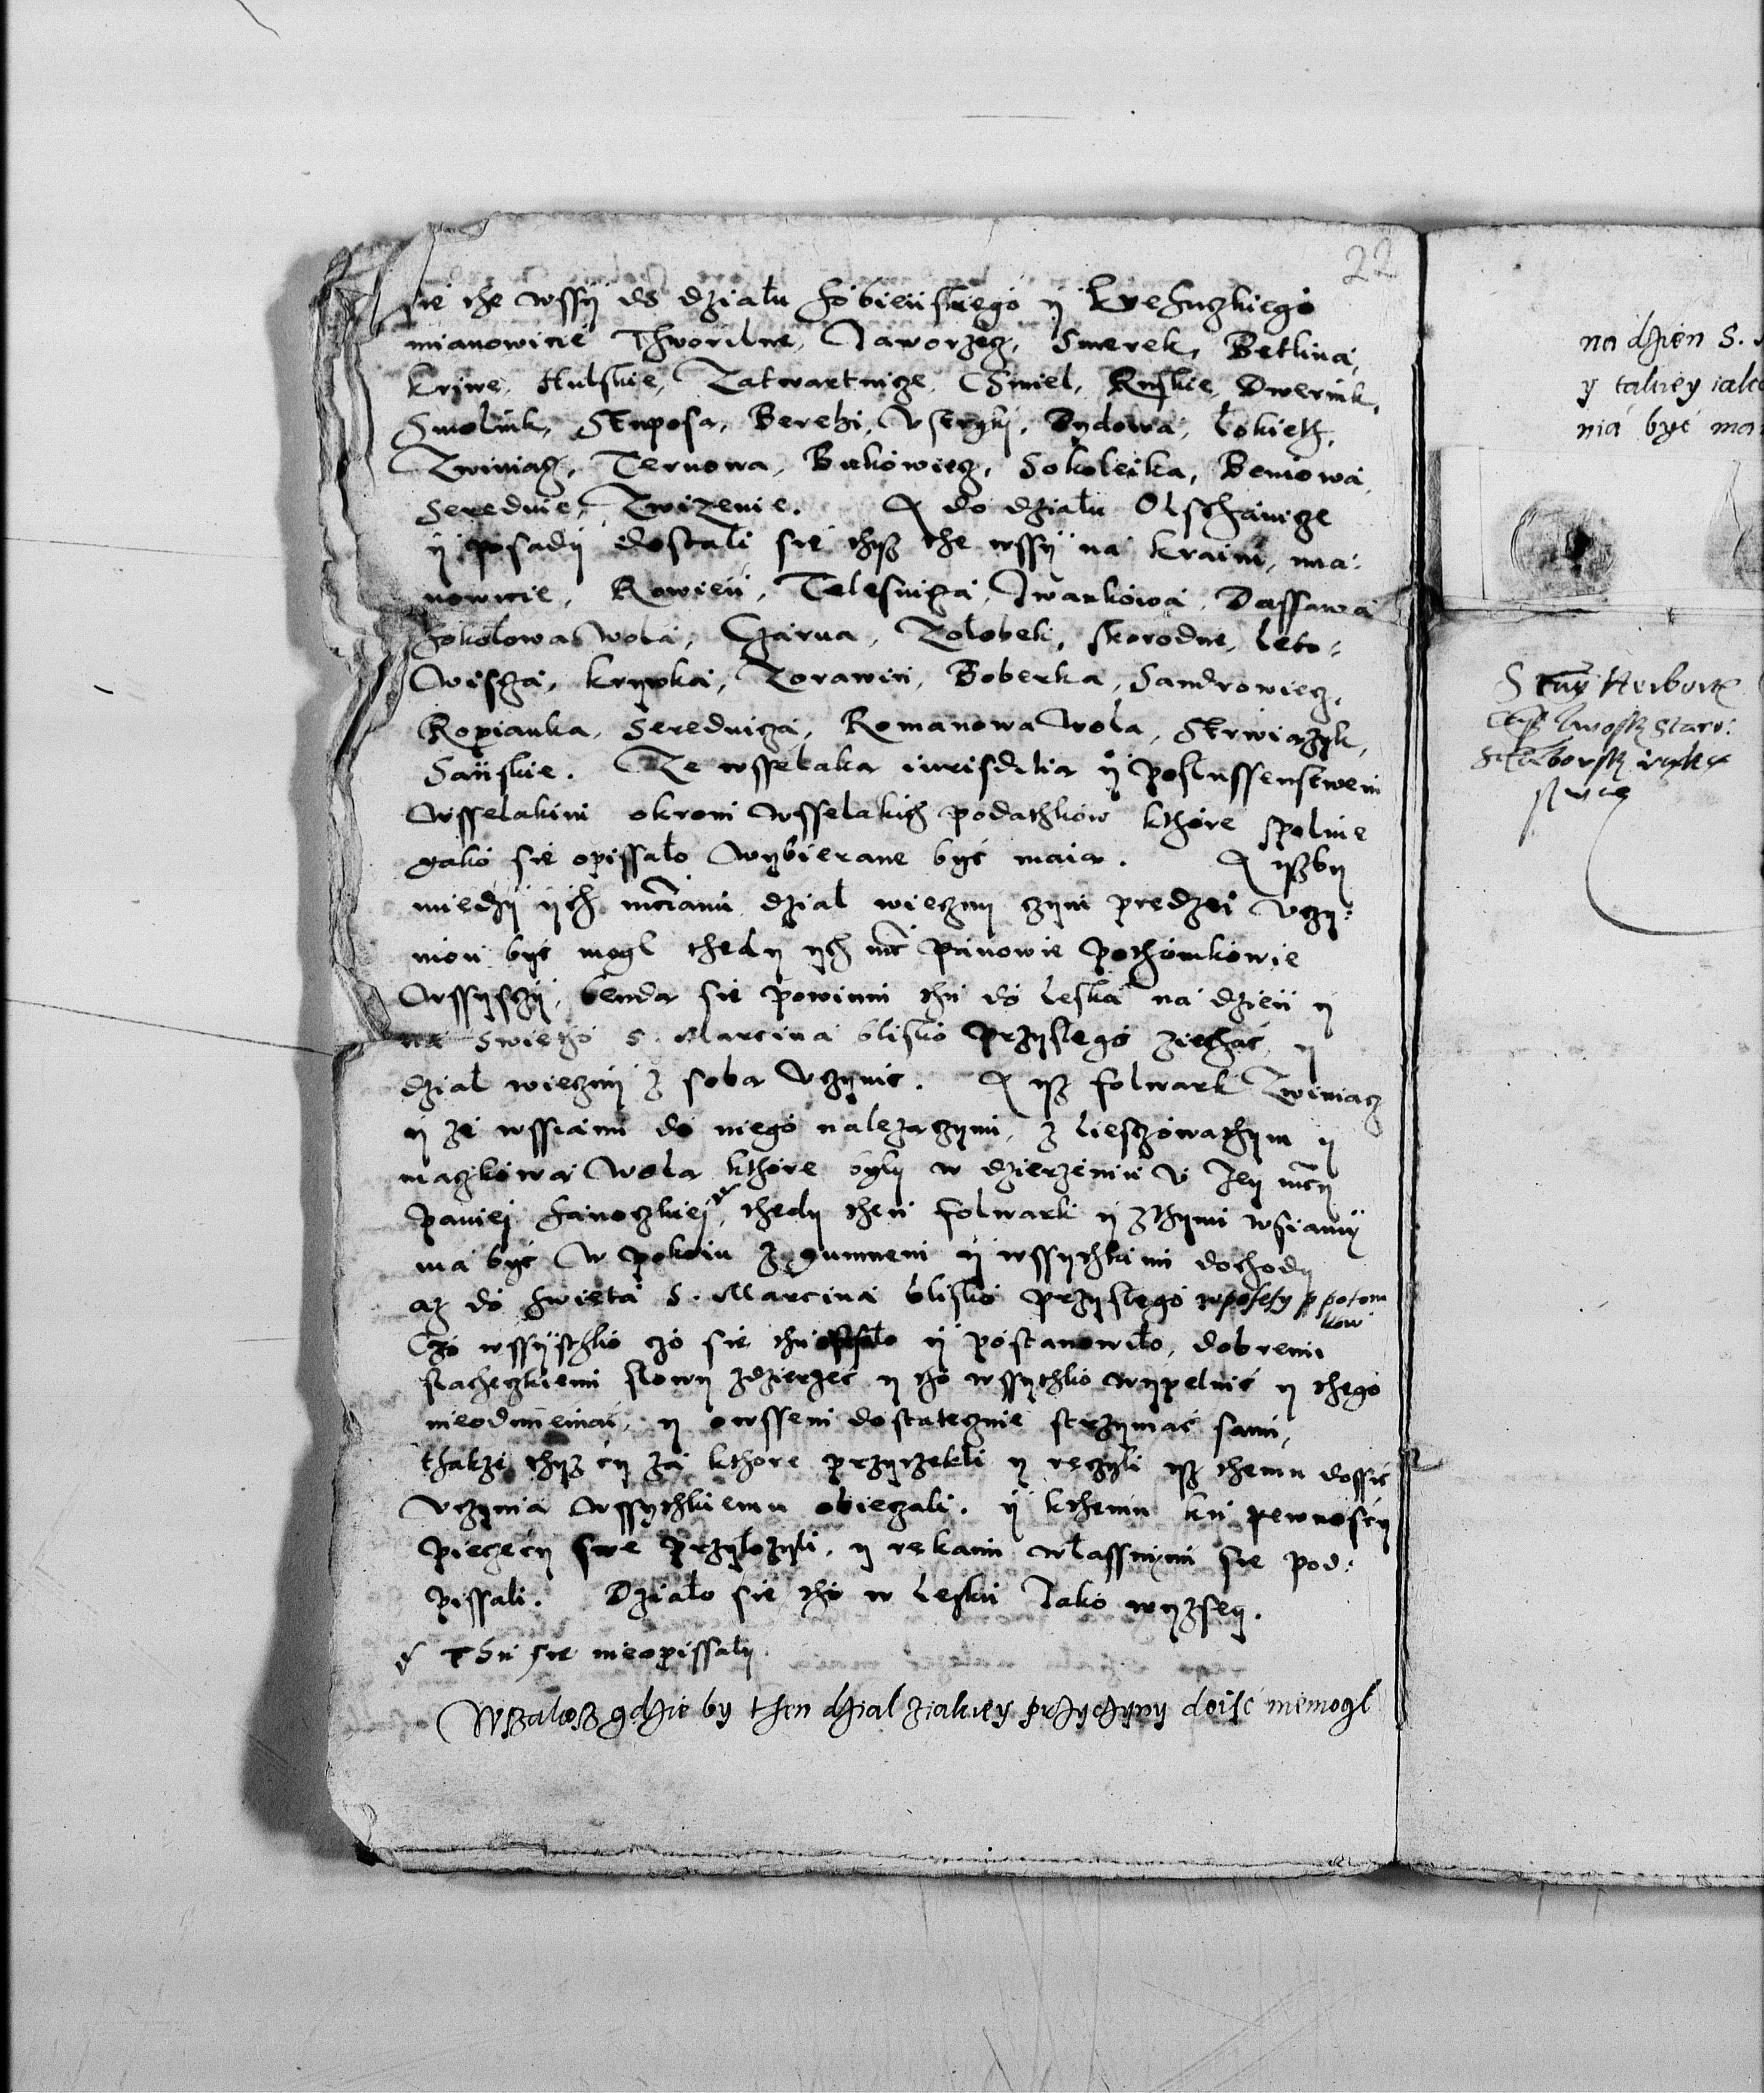 22
sie the wssÿ do dzialu Sobieńskiego ÿ
mianowicie Thworilne, Jaworzecz, Smerek, Betlina,
Kriwe, Hulskie, Zatwartnicze, Chmiel, Ruskie, Dwernik,
Smolnik, Stuposa, Berehi, Ustryki, Dydowa, Lokieth,
Zwiniacz, Ternowa, Bukowiecz, Sokoleika, Beniowa,
Serednie, Zwizenie. A do dzialu Olschanicze
ÿ posadÿ dostali sie thÿsz the wssÿ na kraini, mia-
nowicie, Rowień, Telesnicza, Iwankowa, Dassawa
Sokolowa Wola, Czarna, Zolobek, Skorodne, Leto-
wiscza, krywka, Zorawin, Boberka, Sandrowiecz,
Ropianka, Serednicza, Romanowa Wola, Strwiazyk,
Sańskie. Ze wsselaka iurisditia ÿ poslussenstwem
wsselakim okrom wsselakich podathkow kthore spolnie
yako sie opissalo wybierane być maia. A yszby
miedzÿ ÿch mciami dzial wiecznÿ czym predzei vczy-
nion być mogl thedy ych mć panowie pothomkowie
wssysczÿ, benda sie powinni thu do Leska na dzień y
na swietho S. Marcina blisko przyslego ziechać, y
dzial wiecznÿ z soba vczynic. A ysz folwark Zwiniacz
y ze wssiami do niego nalezaczymi, z Liesczowathym y
maczkowa Wola kthore byly w dzierzeniu v Jey mcÿ
paniej Sanoczkiej, thedy then folwark y z thymi wsiamÿ
ma być w pokoiu z gumnem ÿ wssythkimi dochody
az do swieta S. Marcina blisko przyslego w posesy p potom
kow
Czo wssÿsthko czo sie thu ÿ postanowilo, dobremi
slacheczkiemi slowy zdzierzeć y tho wssythko wypelnić y thego
nieodmieniać, y owssem dostatecznie strzymać sami,
thakze thysz cy za kthore przyrzekli y reczyli ysz themu dossić
vczynia wssythkiemu obieczali. ÿ kthemu ku pewnoscy
pieczecy swe przylozyli, y rekami wlassnymi sie pod-
pissali. Dzialo sie tho w Lesku Jako wyzsey.
Thu sie nieopissaly.
Wszakosz gdzie by then dzial ziakiey przyczyny doisc niemogl
na dzien S.
y takiey iako
nia być ma
Herbort
Lwowsk staro:
reka